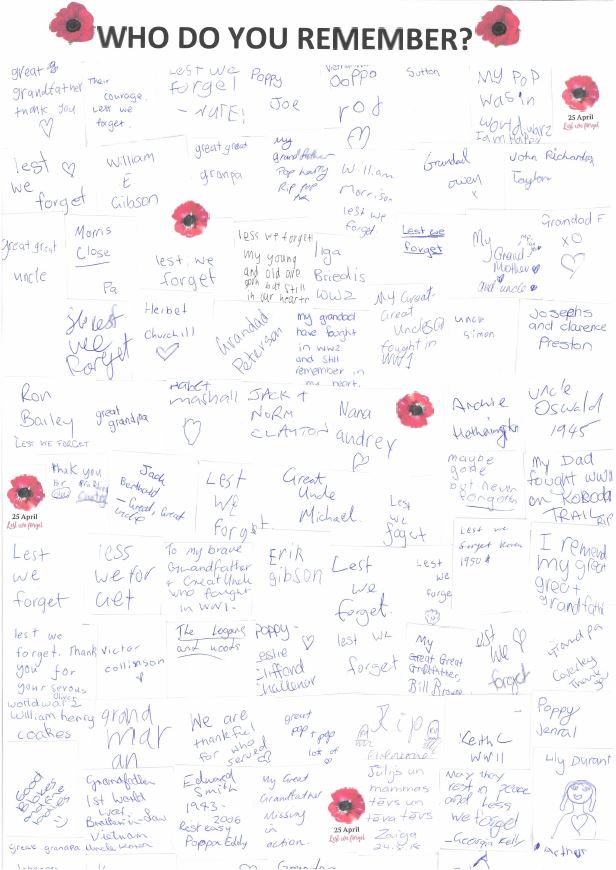 WHO DO YOU REMEMBER?
great
grandfather
thank you
Their
courage.
Less we
forget.
Lest we
forget
- NATE!
Poppy
Joe
OOPPO
rod
Sutton
My POP
was in
world war 2
25 April
Lest we forget
lest
we
forget
William
E
Gibson
great great
granpa
my
grandfather
Pop harry
Rip pop
William
Morrison
lest we
forget.
Grandad
owen
x
John Richardson
Taylor
great great
uncle
Morris
Close
Pa
lest we
forget
less we forget
my young
and old are
gorn but still
in our hearts
Ilga
Briedis
WW2
Lest we
forget
My
Grand
Mother
and uncle
Grandad F
XO
lest
we
Forget
Herbet
Churchill
Grandad
Peterson
my grandad
have fought
in ww2
and still
remember in
my heart.
My Great-
Great
Uncle
fought in
WW1
uncle
Simon
Josephs
and clarence
Preston
Ron
Bailey
LEST WE FORGET
great
grandpa
marshall
JACK +
NORM
CLAYTON
Nana
audrey
Archie
Hetherington
Uncle
Oswald
1945
25 April
Lest we forget
Thank you
for
Jack
Berthold
- Great, Great
Uncle
Lest
We
forget
Great
Uncle
Michael
Lest
we
foget
maybe
gone
but never
forgoten
my Dad
fought WWII
on KOKODA
TRAIL RIP
Lest
we
forget
less
we for
get
To my brave
Grandfather
& Great Uncle
who fought
in WW1.
Erik
Gibson
Lest
we
forget.
Lest
we
forge
Lest we
forget Korea
1950s
I remend
my great
great
grandfather
lest we
forget. Thank
you for
your serous
Victor
collinson
The Logans
and woods
Poppy-
Leslie
Clifford
Challenor
lest we
forget
My
Great Great
Grandfather,
Bill Browne
Lest
We
forget
Grandpa
Caverley
Thank
you
world war 2
William henry
coakes
grand
mar
an
We are
thankful
for who
served
great
pop + pop
lots of
Rip
Keith C
WWII
Poppy
Jenral
Good
Blokes
Grandfather
1st world
war.
Brother-in-law
Vietnam
Uncle Korea
great granapa
Edward
Smith
1943-
2006
Rest easy
Poppa Eddy
My Great
Grandfather
Missing
in
action.
25 April
Lest we forget
Jūlijs un
mammas
tēvs un
tēva tēvs
Zaiga
May they
rest in peace
and Less
we forget
- Georgia Kelly
Lily Durant
Arthur
Grandpa